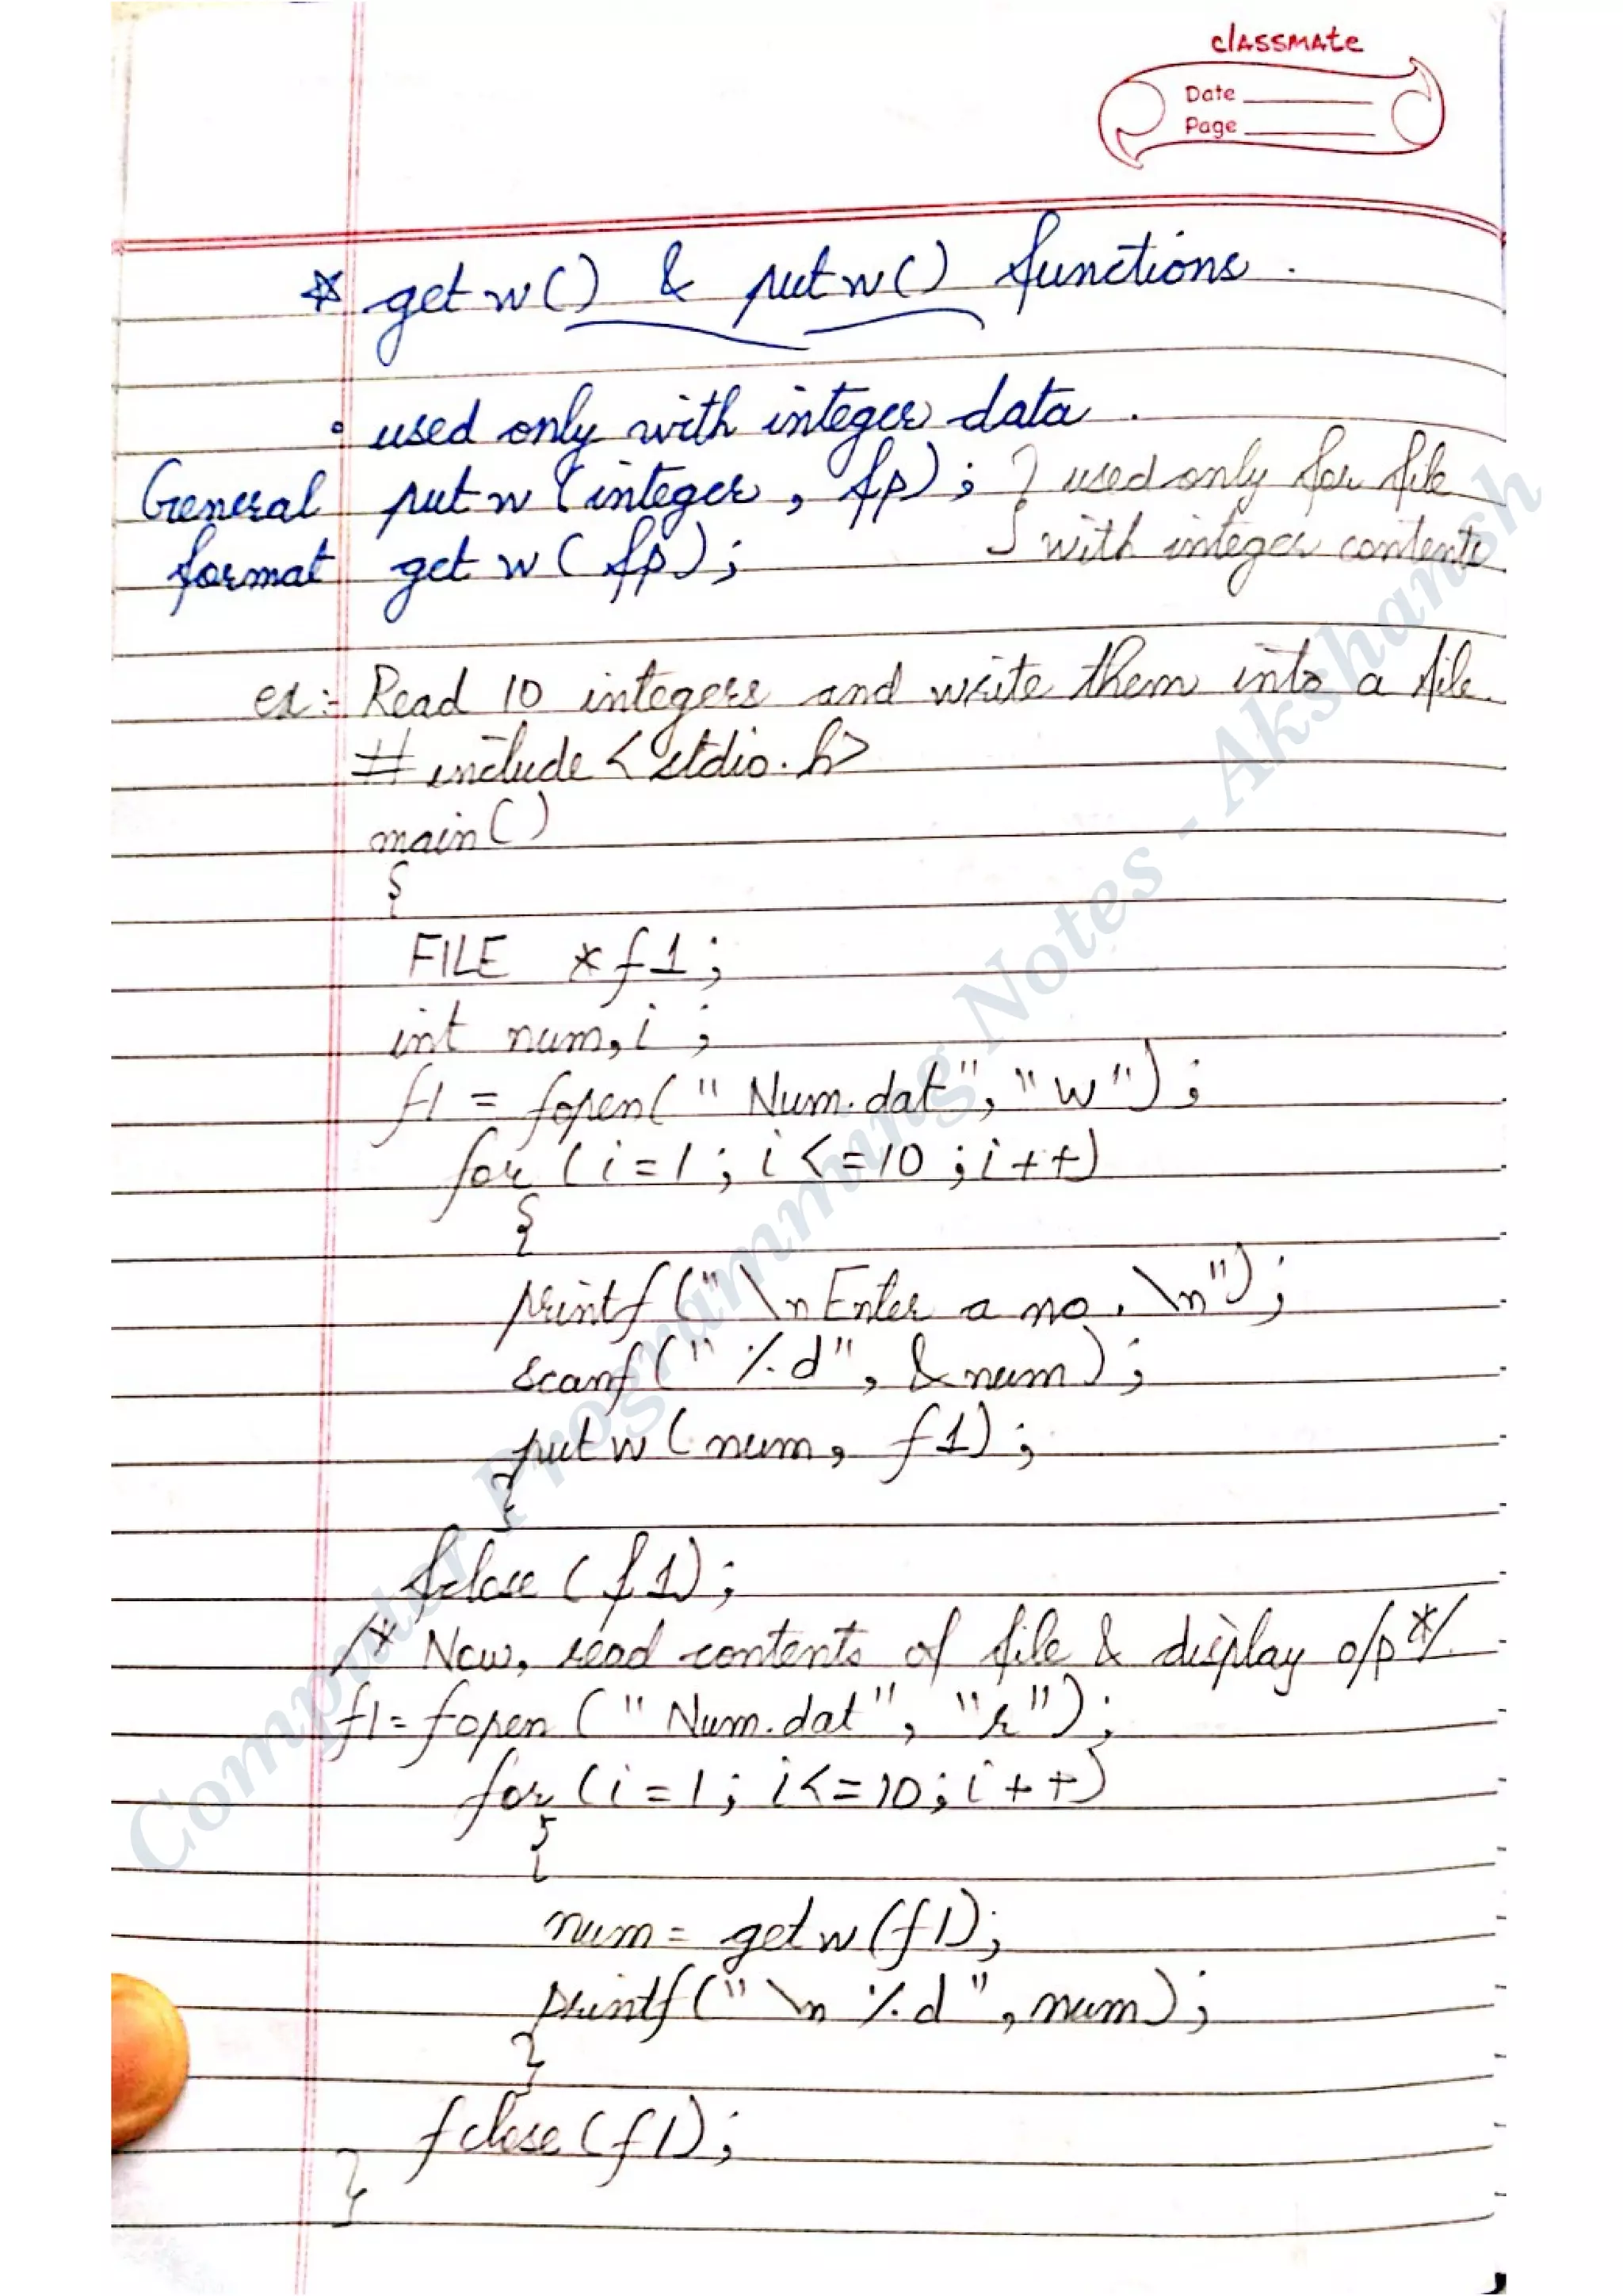 classmate
Date
Page
☆ getw() & putw() functions.
• used only with integer data.
General putw (integer, fp); } used only for file
format getw (fp); } with integer contents
ex:- Read 10 integers and write them into a file.
# include <stdio.h>
main()
{
FILE *f1;
int num,i ;
f1 = fopen("Num.dat", "w");
for (i=1; i<=10; i++)
{
printf("\nEnter a no. \n");
scanf("%d", &num);
putw(num, f1);
}
fclose (f1);
/* Now, read contents of file & display o/p */
f1= fopen ("Num.dat", "r");
for (i=1; i<=10; i++)
{
num= getw(f1);
printf("\n %d", num);
}
fclose(f1);
}
Computer Programming Notes - Akshansh